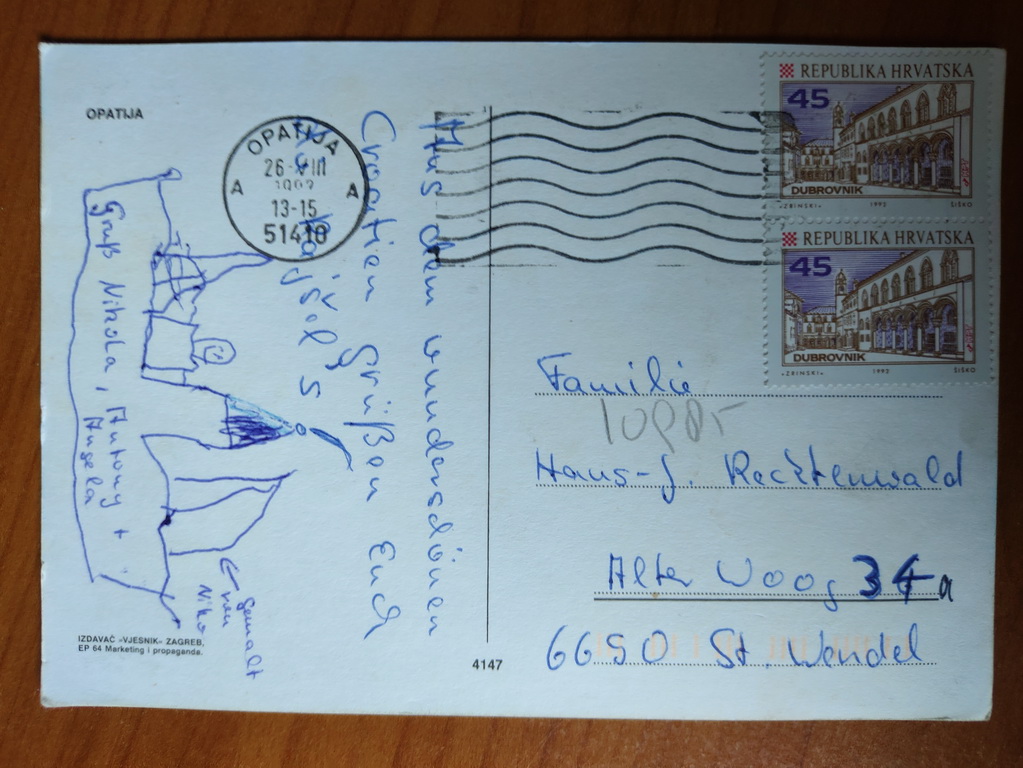 OPATIJA
OPATIJA
26-VIII
1992
A A
13-15
51410
REPUBLIKA HRVATSKA
45
DUBROVNIK
"ZRINSKI" 1992 ŠIŠKO
REPUBLIKA HRVATSKA
45
DUBROVNIK
"ZRINSKI" 1992 ŠIŠKO
Aus dem wunderschönen
Croatien grüßen Euch
Gruß Nikola, Antony +
Angela
gemalt
von
Niko
Familie
Hans-J. Recktenwald
Alter Woog 34a
6690 St. Wendel
IZDAVAČ "VJESNIK" ZAGREB,
EP 64 Marketing i propaganda.
4147